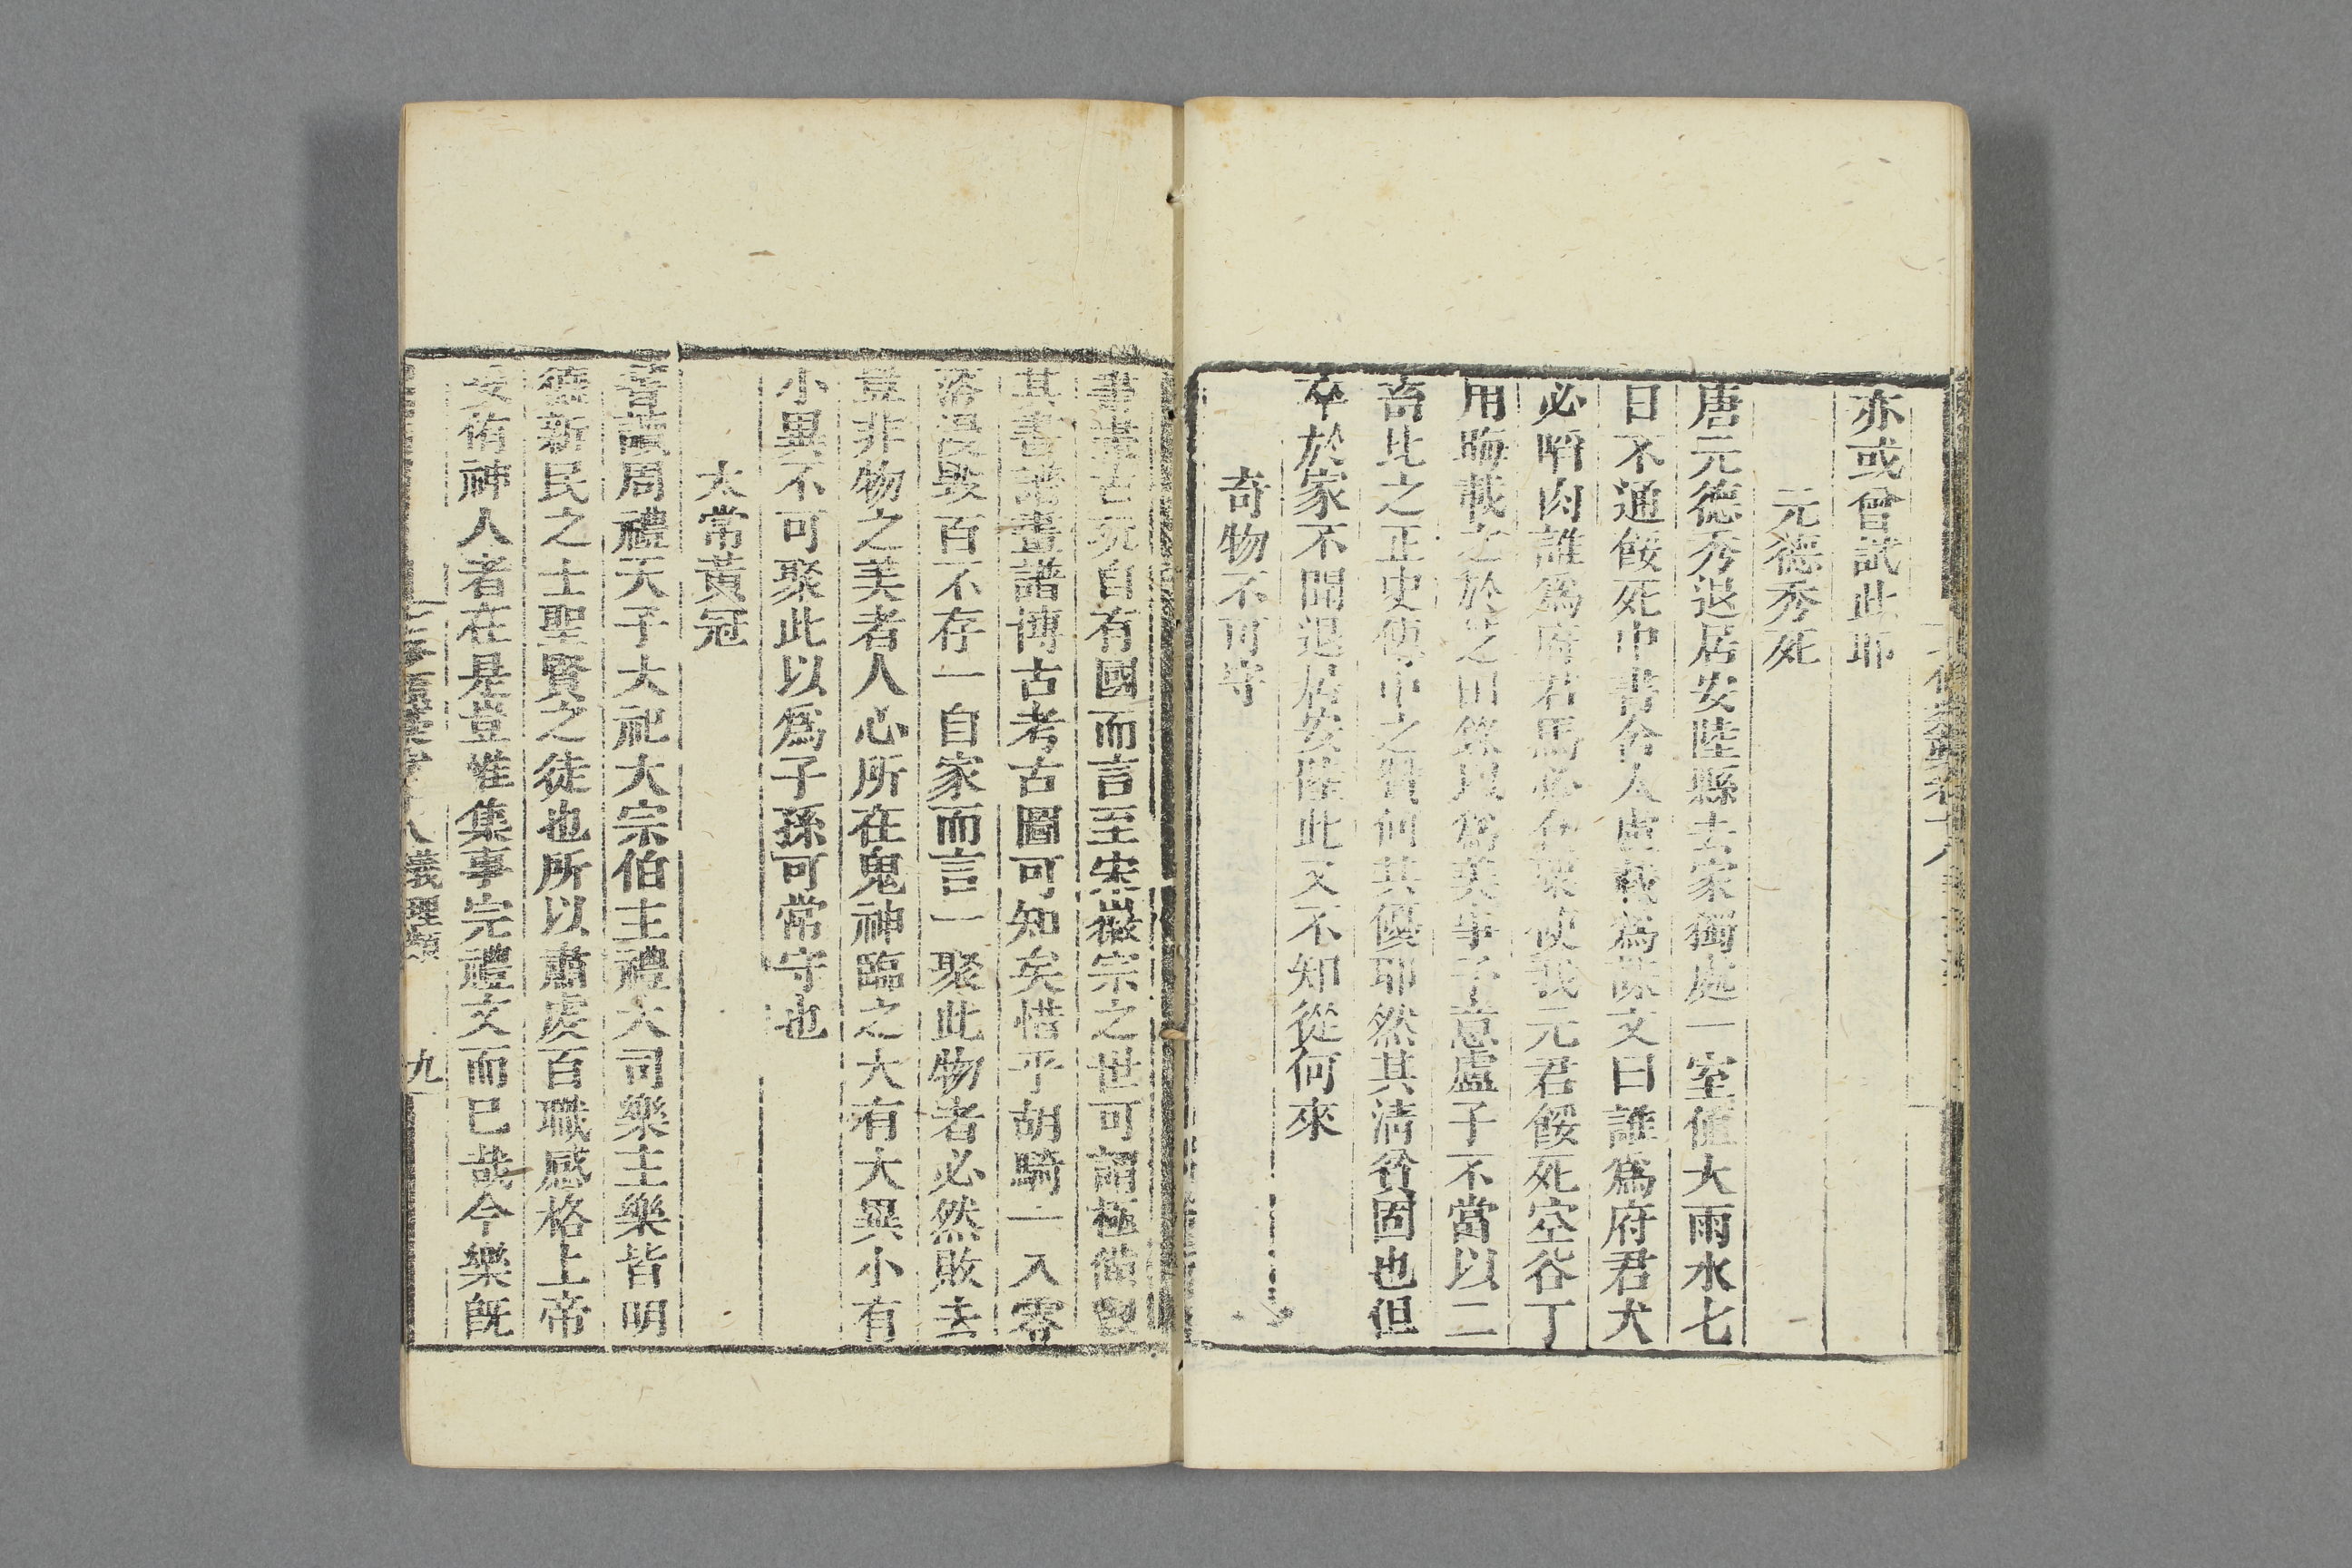 亦或曾試此耶
元德秀死
唐元德秀退居安陸縣去家獨處一室値大雨水七
日不通餒死中書舍人盧載爲誄文曰誰爲府君犬
必啗肉誰爲府君馬必食粟使我元君餒死空谷丁
用晦載之於芝田錄以爲美事予意盧子不當以二
畜比之正史傳中之贊何其優耶然其淸苦固也但
卒於家不聞退居安陸此又不知從何來
奇物不可守
書畫古玩自有國而言至宋徽宗之世可謂極備觀
其書譜畫譜博古考古圖可知矣惜乎胡騎一入零
落浸毁百不存一自家而言一聚此物者必然敗去
豈非物之美者人心所在鬼神臨之大有大異小有
小異不可聚此以爲子孫可常守也
太常黃冠
嘗讀周禮天子大祀大宗伯主禮大司樂主樂皆明
德新民之士聖賢之徒也所以肅䖍百職感格上帝
妥侑神人者在是豈惟集事完禮文而已哉今樂旣
義理類
九